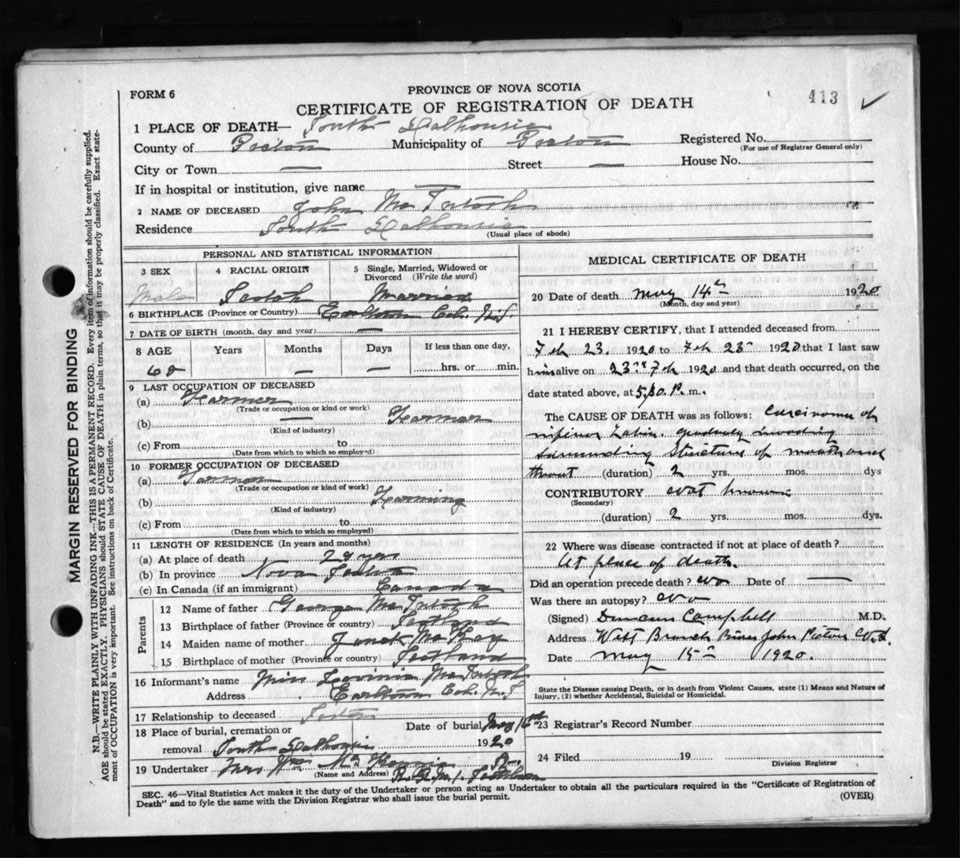 FORM 6
PROVINCE OF NOVA SCOTIA
CERTIFICATE OF REGISTRATION OF DEATH
413 ✓
1 PLACE OF DEATH— South Dalhousie
County of Pictou Municipality of Pictou Registered No.
(For use of Registrar General only)
City or Town — Street — House No.
If in hospital or institution, give name —
2 NAME OF DECEASED John McIntosh
Residence South Dalhousie
(Usual place of abode)
PERSONAL AND STATISTICAL INFORMATION
3 SEX 4 RACIAL ORIGIN 5 Single, Married, Widowed or Divorced (Write the word)
Male Scotch Married
6 BIRTHPLACE (Province or Country) Earltown Col. N.S.
7 DATE OF BIRTH (month, day and year) —
8 AGE Years Months Days If less than one day,
— — hrs. or min.
9 LAST OCCUPATION OF DECEASED
(a) Farmer
(Trade or occupation or kind or work)
(b) — Farmer
(Kind of industry)
(c) From to
(Date from which to which so employed)
10 FORMER OCCUPATION OF DECEASED
(a) Farmer
(Trade or occupation or kind or work)
(b) Farming
(Kind of industry)
(c) From to
(Date from which to which so employed)
11 LENGTH OF RESIDENCE (In years and months)
(a) At place of death 28 yrs
(b) In province Nova Scotia
(c) In Canada (if an immigrant) Canada
Parents
12 Name of father George McIntosh
13 Birthplace of father (Province or country) Scotland
14 Maiden name of mother Janet McKay
15 Birthplace of mother (Province or country) Scotland
16 Informant's name Miss Lavinia McIntosh
Address Earltown Col. N.S
17 Relationship to deceased Sister
18 Place of burial, cremation or Date of burial May 16th
removal South Dalhousie 1920
19 Undertaker Mrs Wm
(Name and Address) R.R. No 1. Scotsburn
MEDICAL CERTIFICATE OF DEATH
20 Date of death May 14th 1920
(Month, day and year)
21 I HEREBY CERTIFY, that I attended deceased from
Feb 23. 1920 to Feb 23rd 1920 that I last saw
him alive on 23rd Feb 1920 and that death occurred, on the
date stated above, at 5.30 P. m.
The CAUSE OF DEATH was as follows: Carcinoma of
inferior Labia. gradually invading
surrounding structures of mouth and
throat (duration) 2 yrs. mos. dys
CONTRIBUTORY not known
(Secondary)
(duration) 2 yrs. mos. dys.
22 Where was disease contracted if not at place of death?
At place of death.
Did an operation precede death? No Date of —
Was there an autopsy? No
(Signed) Duncan Campbell M.D.
Address West Branch River John Pictou Co. N.S.
Date May 15th 1920.
State the Disease causing Death, or in death from Violent Causes, state (1) Means and Nature of
Injury, (2) whether Accidental, Suicidal or Homicidal.
23 Registrar's Record Number
24 Filed 19
Division Registrar
SEC. 46—Vital Statistics Act makes it the duty of the Undertaker or person acting as Undertaker to obtain all the particulars required in the "Certificate of Registration of
Death" and to fyle the same with the Division Registrar who shall issue the burial permit.
(OVER)
MARGIN RESERVED FOR BINDING
N.B.—WRITE PLAINLY WITH UNFADING INK—THIS IS A PERMANENT RECORD. Every item of information should be carefully supplied.
AGE should be stated EXACTLY. PHYSICIANS should STATE CAUSE OF DEATH in plain terms, so that it may be properly classified. Exact state-
ment of OCCUPATION is very important. See instructions on back of Certificate.